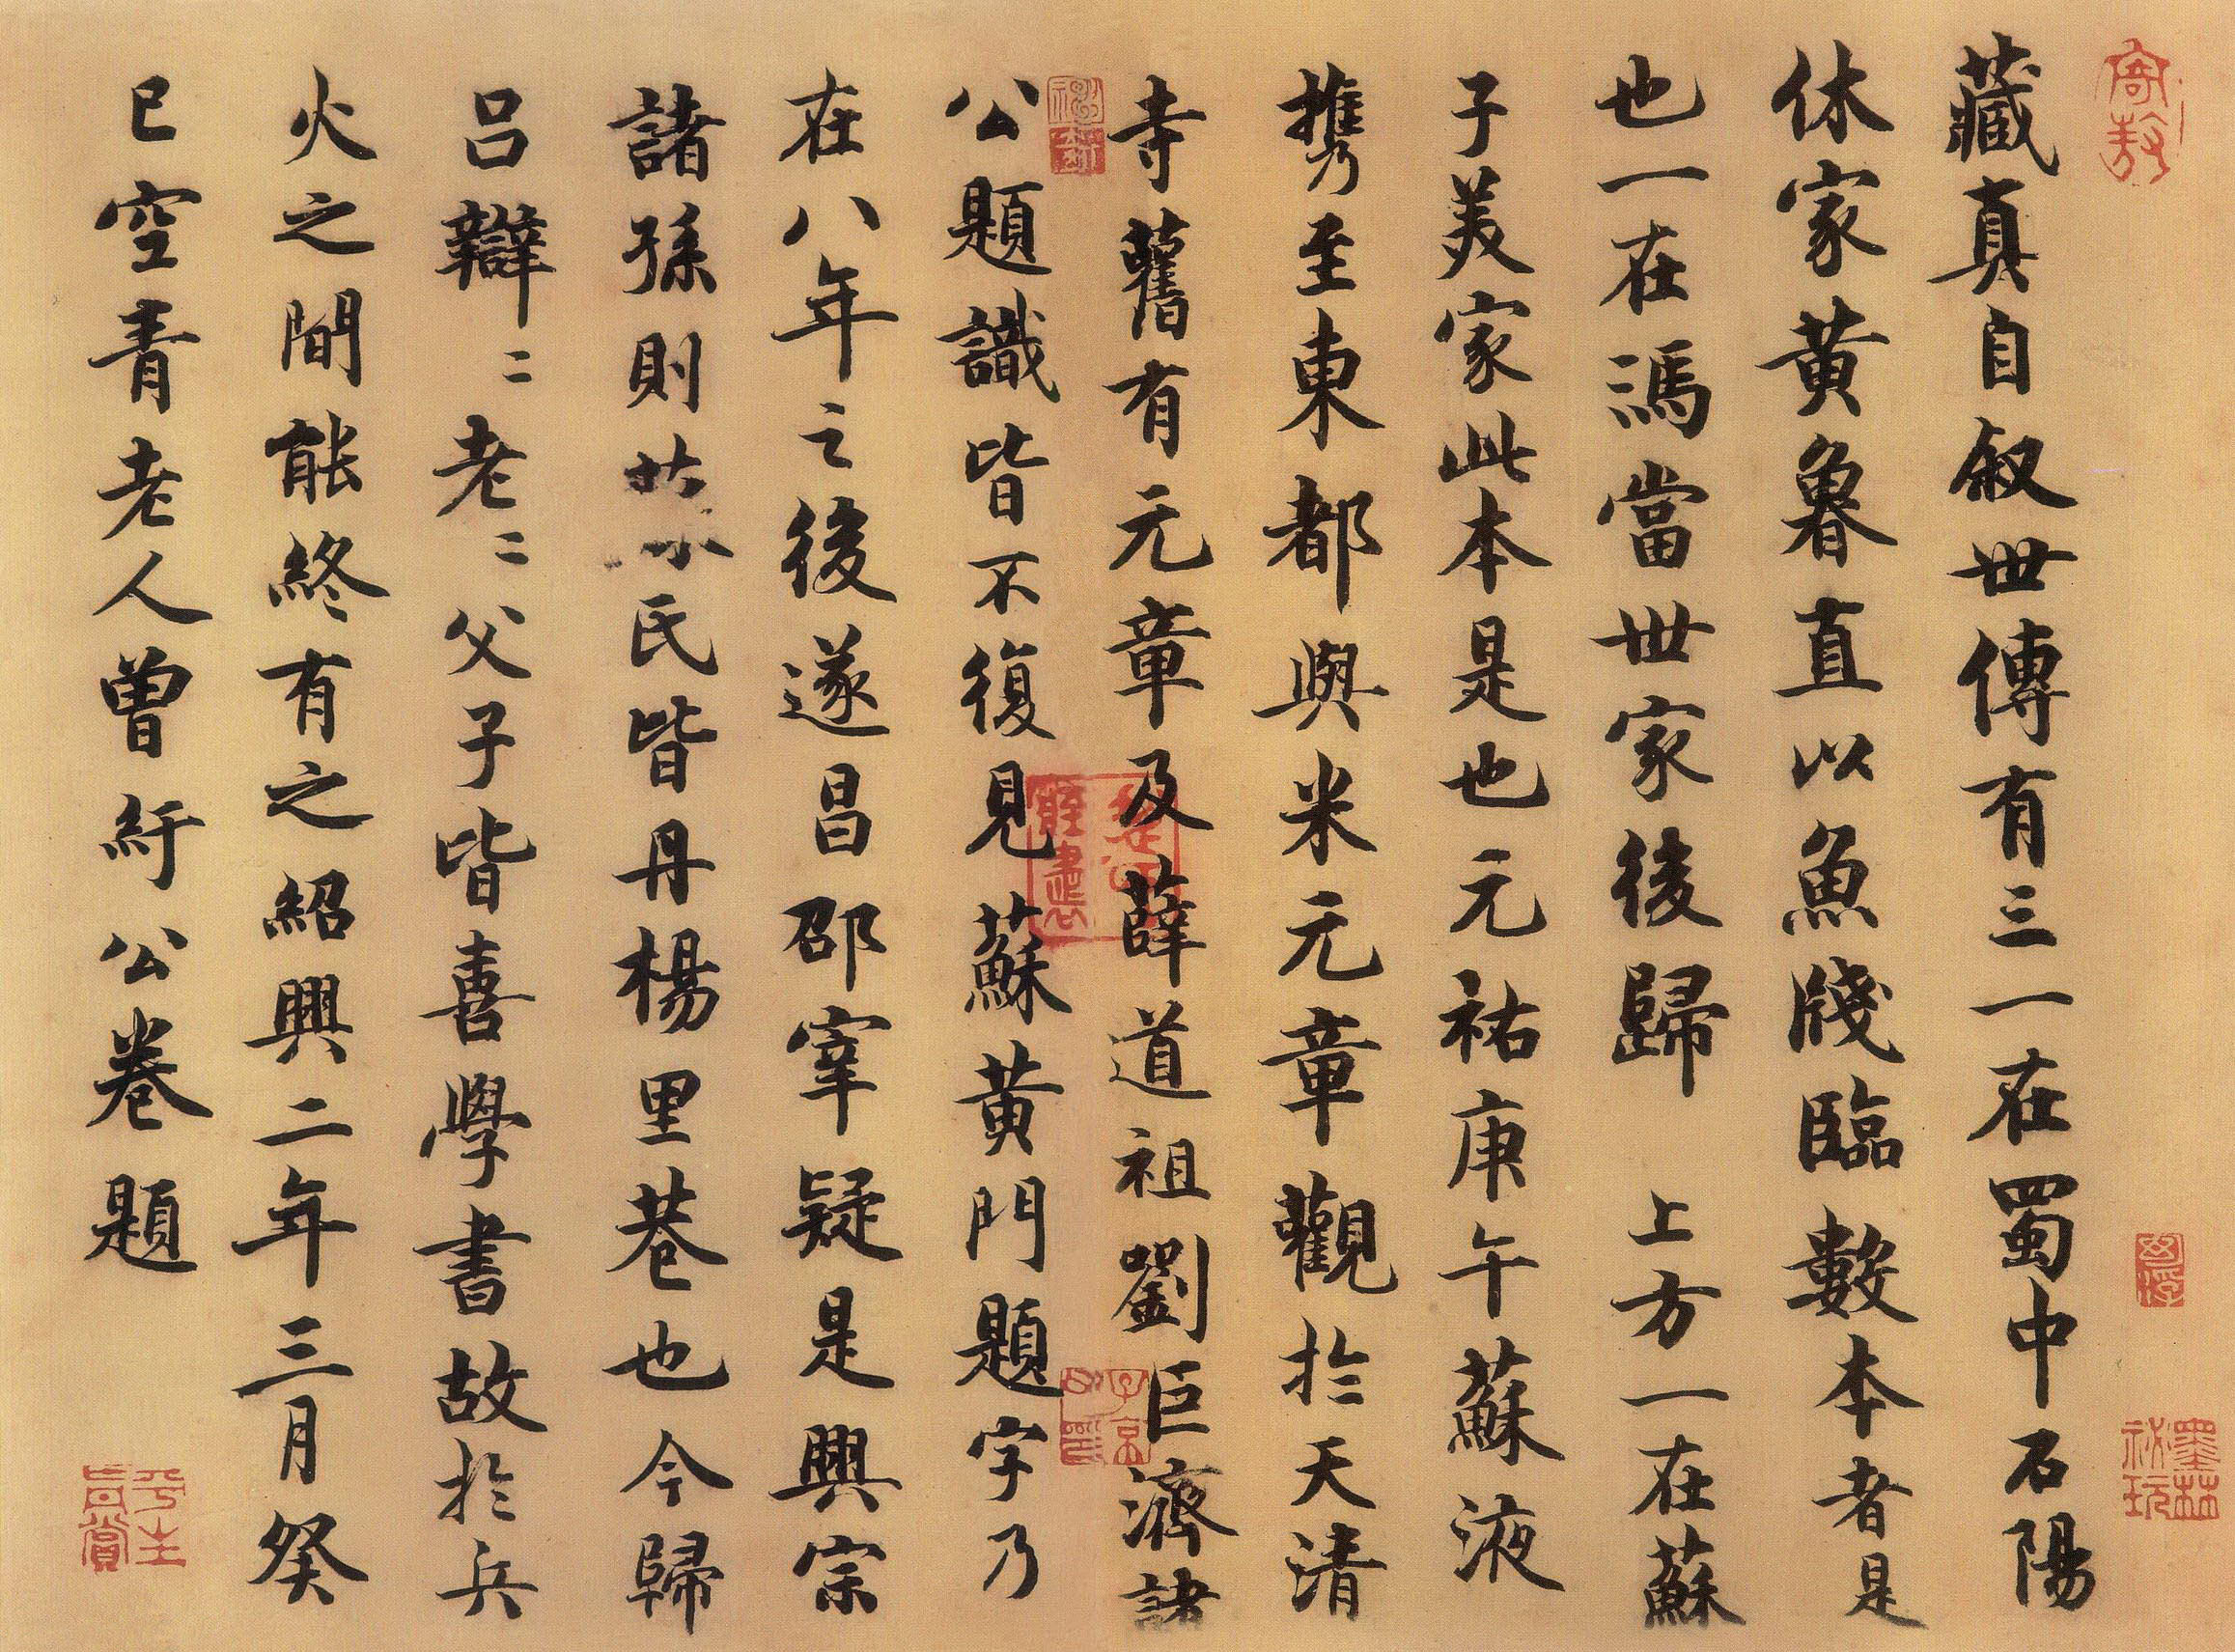 藏真自叙世傳有三一在蜀中石陽
休家黃魯直以魚牋臨數本者是
也一在馮當世家後歸 上方一在蘇
子美家此本是也元祐庚午蘇液
攜至東都與米元章觀於天清
寺舊有元章及薛道祖劉巨濟諸
公題識皆不復見蘇黃門題字乃
在八年之後遂昌邵宰疑是興宗
諸孫則 氏皆丹楊里巷也今歸
呂辯二老二父子皆喜學書故於兵
火之間能終有之紹興二年三月癸
巳空青老人曾紆公卷題
墨林祕玩
平生真賞